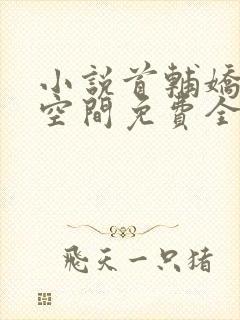 小說首輔嬌
空間免費全
飛天一只豬